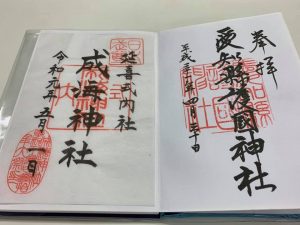 奉拝
愛知縣護國神社
平成三十一年四月三十日
延喜式内社
成海神社
令和元年五月一日